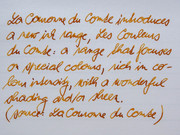 La Couronne du Comte introduces
a new ink range, Les Couleurs
du Comte: a range that focuses
on special colours, rich in co-
lour intensity, with a wonderful
shading and/or sheen.
(source: La Couronne du Comte)